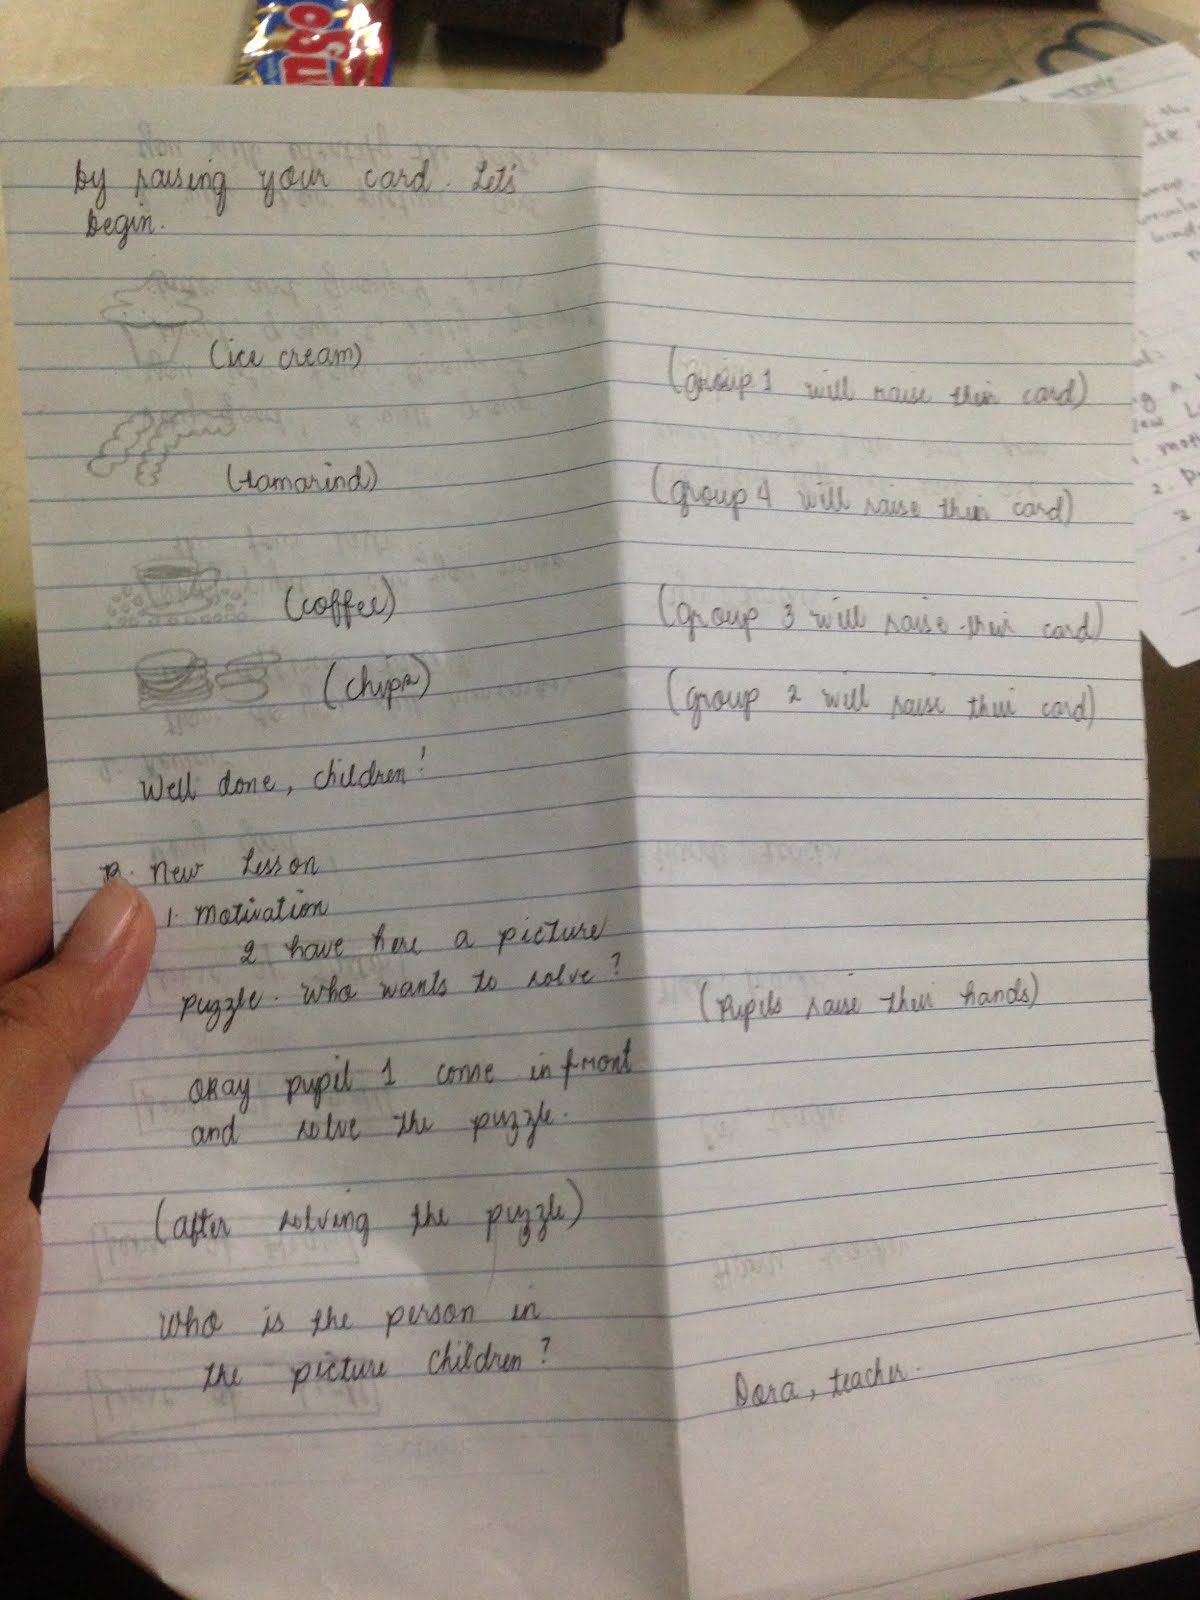 by raising your card. Let's
begin.
(ice cream)
(group 1 will raise their card)
(tamarind)
(group 4 will raise their card)
(coffee)
(group 3 will raise their card)
(chips)
(group 2 will raise their card)
Well done, children!
B. New Lesson
1. Motivation
I have here a picture
puzzle. Who wants to solve?
(Pupils raise their hands)
Okay pupil 1 come infront
and solve the puzzle.
(after solving the puzzle)
Who is the person in
the picture children?
Dora, teacher.